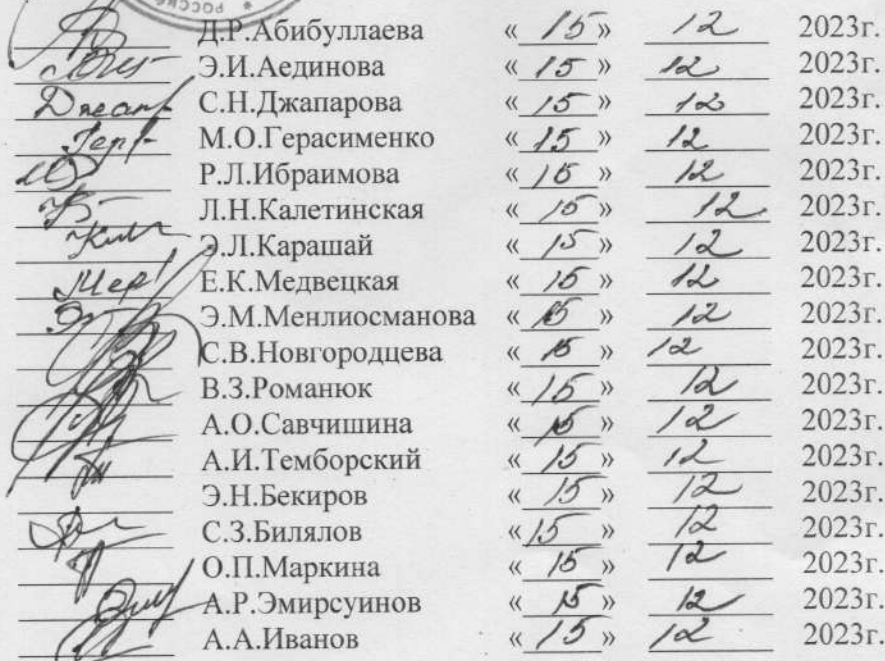 Д.Р.Абибуллаева « 15 » 12 2023г.
Э.И.Аединова « 15 » 12 2023г.
С.Н.Джапарова « 15 » 12 2023г.
М.О.Герасименко « 15 » 12 2023г.
Р.Л.Ибраимова « 15 » 12 2023г.
Л.Н.Калетинская « 15 » 12 2023г.
Э.Л.Карашай « 15 » 12 2023г.
Е.К.Медвецкая « 15 » 12 2023г.
Э.М.Менлиосманова « 15 » 12 2023г.
С.В.Новгородцева « 15 » 12 2023г.
В.З.Романюк « 15 » 12 2023г.
А.О.Савчишина « 15 » 12 2023г.
А.И.Темборский « 15 » 12 2023г.
Э.Н.Бекиров « 15 » 12 2023г.
С.З.Билялов « 15 » 12 2023г.
О.П.Маркина « 15 » 12 2023г.
А.Р.Эмирсуинов « 15 » 12 2023г.
А.А.Иванов « 15 » 12 2023г.